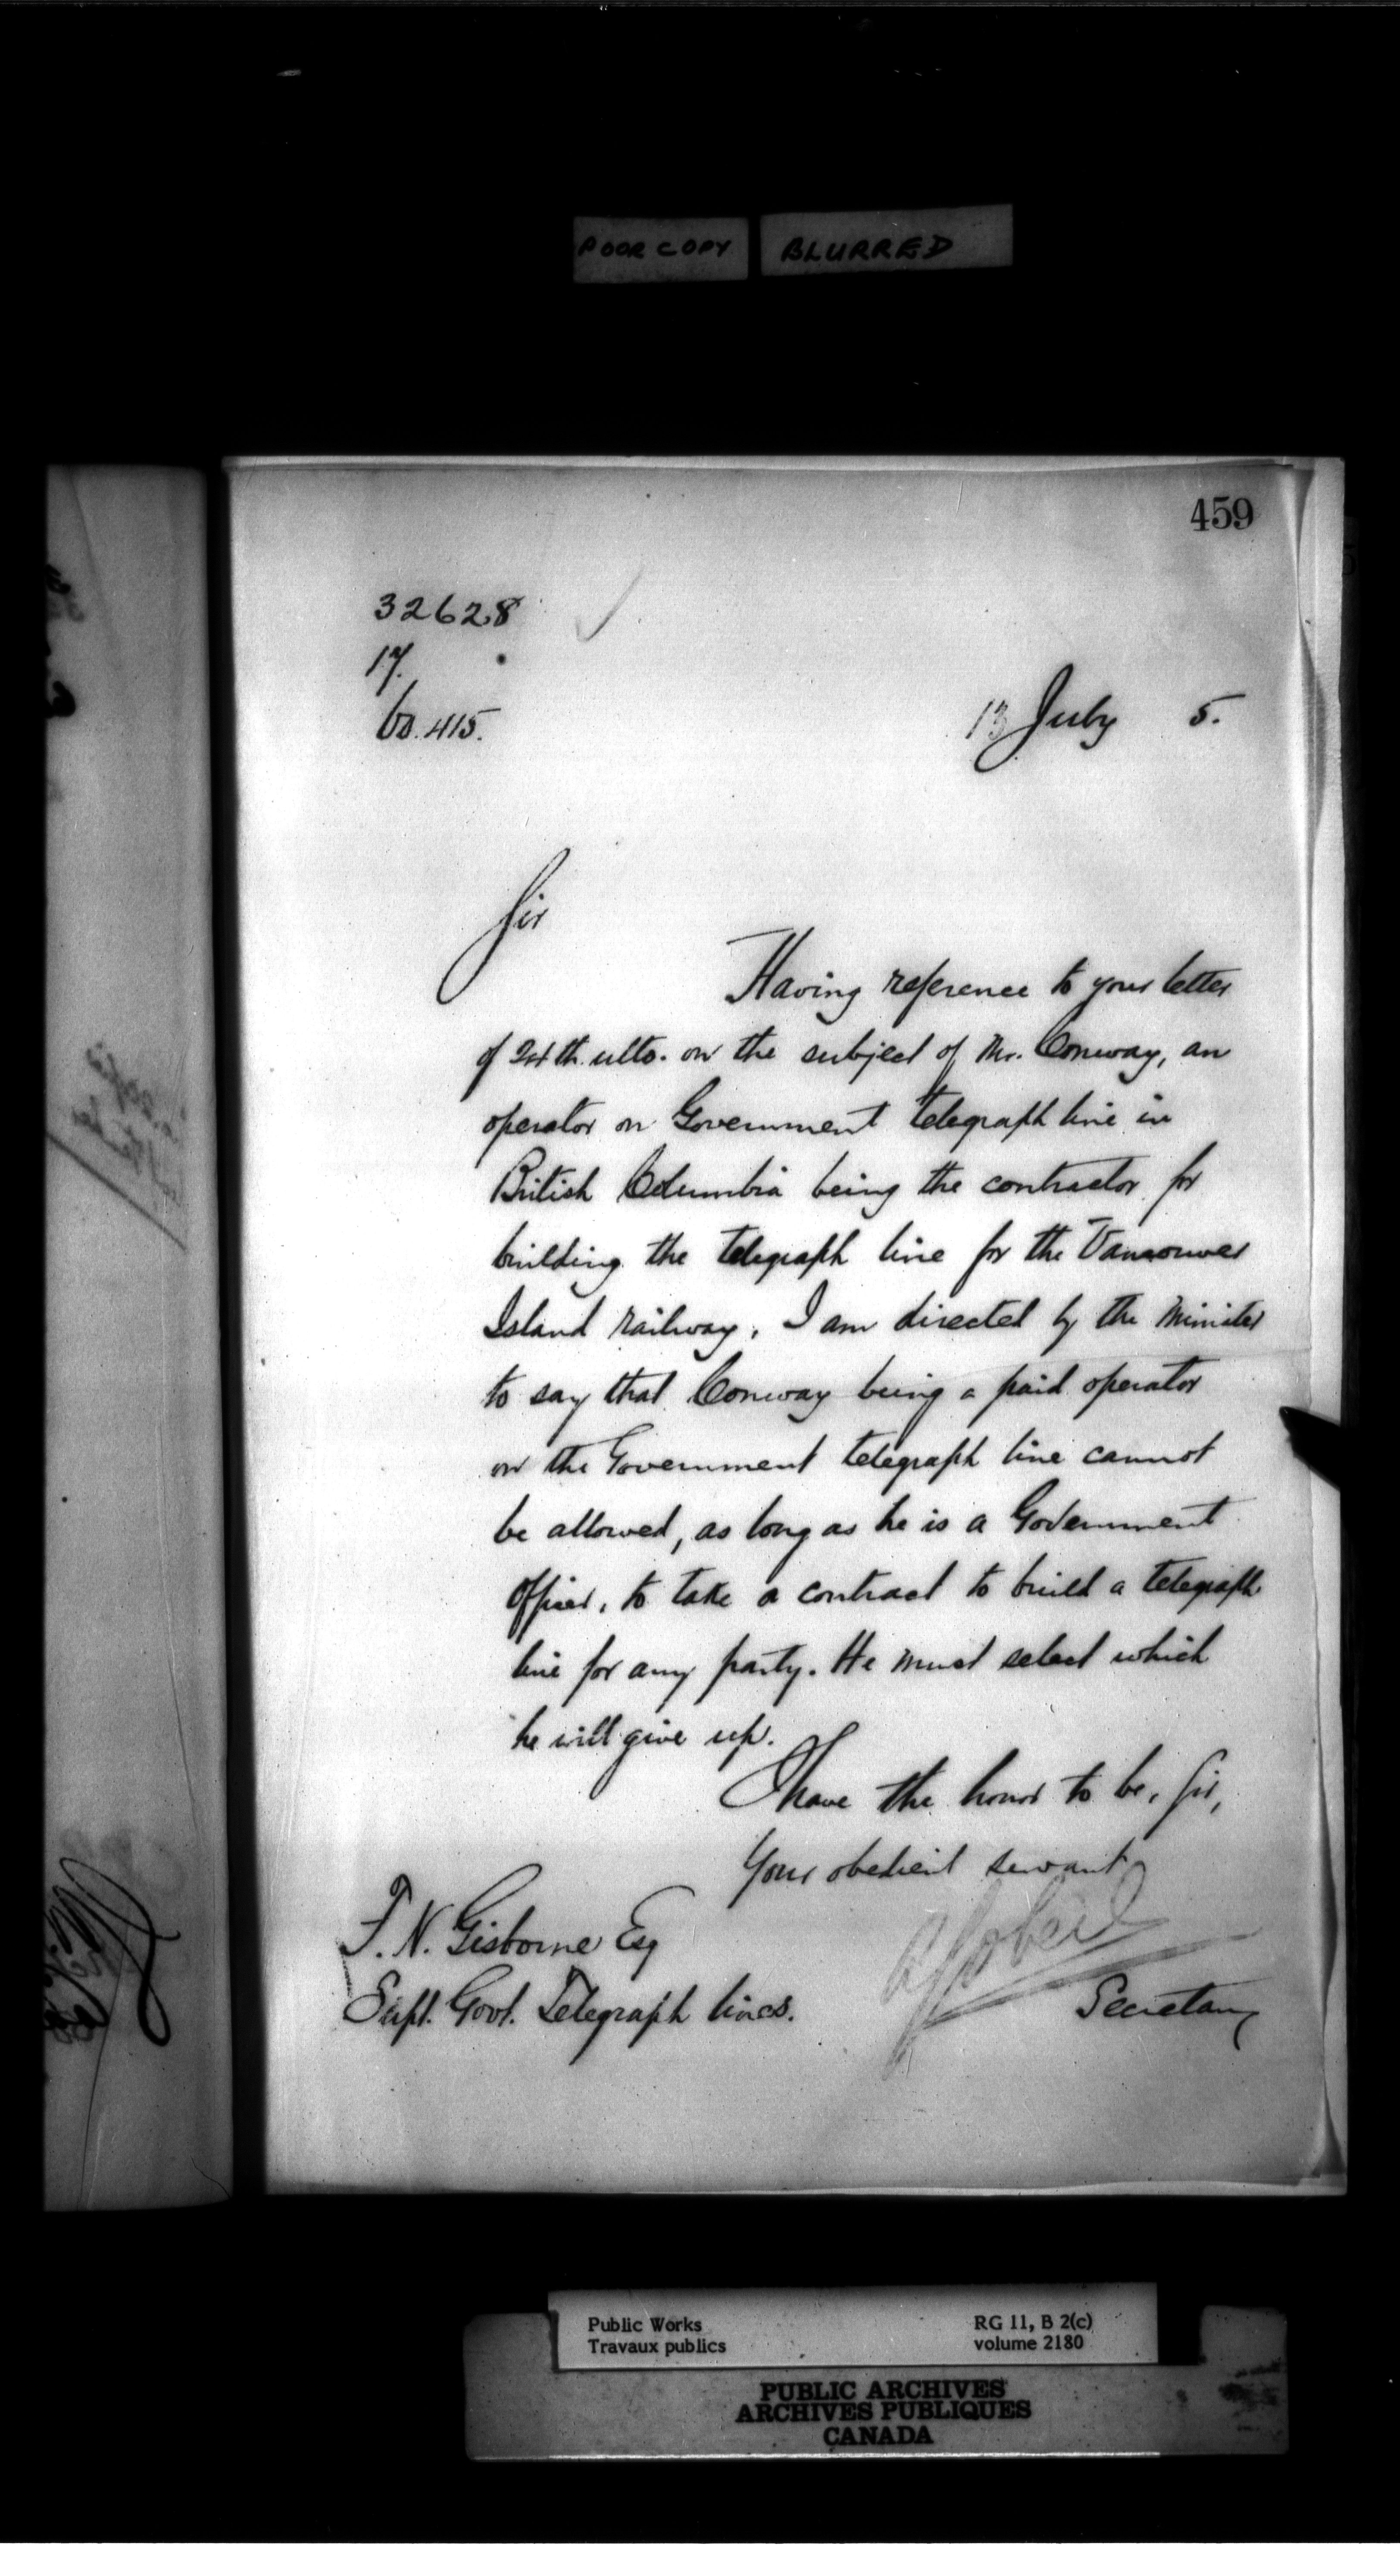 POOR COPY BLURRED
459
32628
17.
60.415.
13 July 5.
Sir
Having reference to your letter
of 24th ulto. on the subject of Mr. Conway, an
operator on Government telegraph line in
British Columbia being the contractor for
building the telegraph line for the Vancouver
Island railway, I am directed by the Minister
to say that Conway being a paid operator
on the Government telegraph line cannot
be allowed, as long as he is a Government
Officer, to take a contract to build a telegraph
line for any party. He must select which
he will give up.
I have the honor to be, Sir,
Your obedient servant
F. N. Gisborne Esq
Secretary
Supt. Govt. Telegraph lines.
Public Works RG 11, B 2(c)
Travaux publics volume 2180
PUBLIC ARCHIVES
ARCHIVES PUBLIQUES
CANADA